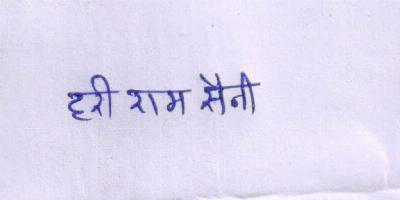 हरी राम सैनी